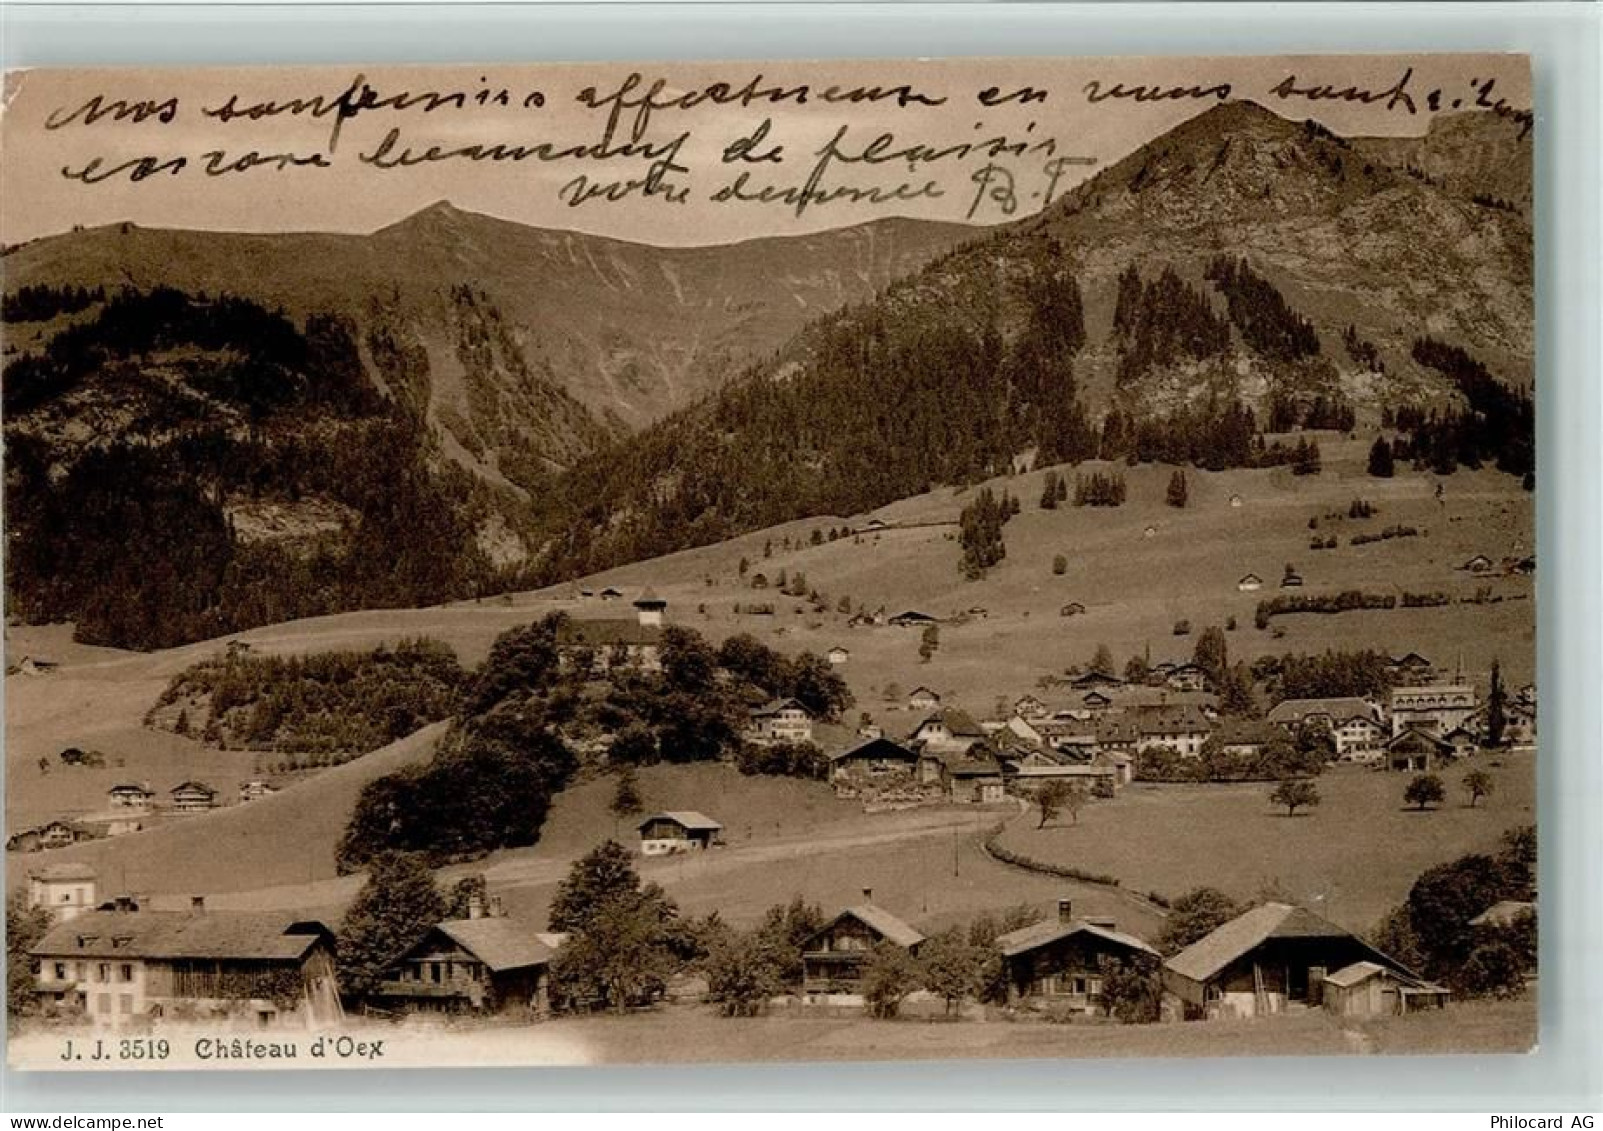 Nos souvenirs affectueux en vous souhaitant
encore beaucoup de plaisir
votre B.T
J. J. 3519 Château d'Oex
Philocard AG